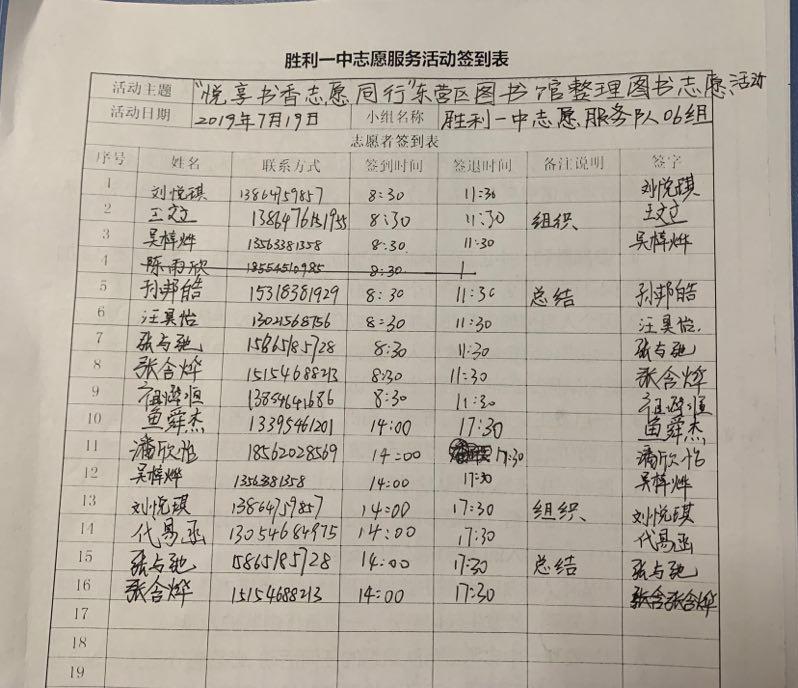 胜利一中志愿服务活动签到表
活动主题 "悦享书香志愿同行"东营区图书馆整理图书志愿活动
活动日期 2019年7月19日 小组名称 胜利一中志愿服务队06组
志愿者签到表
序号 姓名 联系方式 签到时间 签退时间 备注说明 签字
1 刘悦琪 13864759857 8:30 11:30 刘悦琪
2 王文立 8:30 11:30 组织 王文立
3 吴梓烨 13563381358 8:30 11:30 吴梓烨
4 陈雨欣 18554510985 8:30
5 孙邦皓 15318381929 8:30 11:30 总结 孙邦皓
6 汪昊怡 13021568756 8:30 11:30 汪昊怡
7 张与弛 15865185728 8:30 11:30 张与弛
8 张含烨 15154688213 8:30 11:30 张含烨
9 8:30 11:30
10 鱼舜杰 13395461201 14:00 17:30 鱼舜杰
11 潘欣怡 18562028569 14:00 17:30 潘欣怡
12 吴梓烨 14:00 17:30 吴梓烨
13 刘悦琪 13864759857 14:00 17:30 组织 刘悦琪
14 代易函 13054684975 14:00 17:30 代易函
15 张与弛 15865185728 14:00 17:30 总结 张与弛
16 张含烨 15154688213 14:00 17:30 张含张含烨
17
18
19